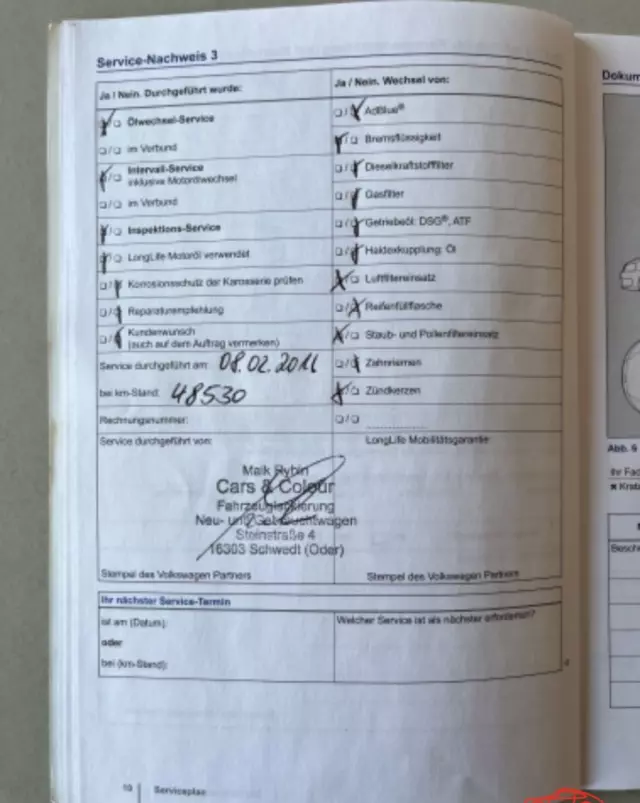 Service-Nachweis 3
Ja / Nein. Durchgeführt wurde:
Ölwechsel-Service
im Verbund
Intervall-Service
inklusive Motorölwechsel
im Verbund
Inspektions-Service
LongLife Motoröl verwendet
Korrosionsschutz der Karosserie prüfen
Reparaturempfehlung
Kundenwunsch
(auch auf dem Auftrag vermerken)
Service durchgeführt am: 08.02.2011
bei km-Stand: 48530
Rechnungsnummer:
Service durchgeführt von:
Maik Rybin
Cars & Colour
Fahrzeuglackierung
Neu- und Gebrauchtwagen
Steinstraße 4
16303 Schwedt (Oder)
Stempel des Volkswagen Partners
Ja / Nein. Wechsel von:
AdBlue®
Bremsflüssigkeit
Dieselkraftstofffilter
Gasfilter
Getriebeöl: DSG®, ATF
Haldexkupplung: Öl
Luftfiltereinsatz
Reifenfüllflasche
Staub- und Pollenfiltereinsatz
Zahnriemen
Zündkerzen
LongLife Mobilitätsgarantie
Stempel des Volkswagen Partners
Ihr nächster Service-Termin
ist am (Datum):
oder
bei (km-Stand):
Welcher Service ist als nächster erforderlich?
10 Serviceplan
Dokum
Abb. 9
Ihr Fac
Kratz
Besch